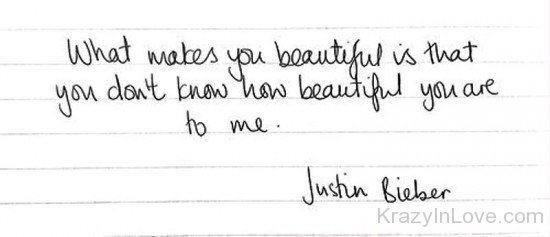 What makes you beautiful is that
you don't know how beautiful you are
to me.
Justin Bieber
KrazyInLove.com